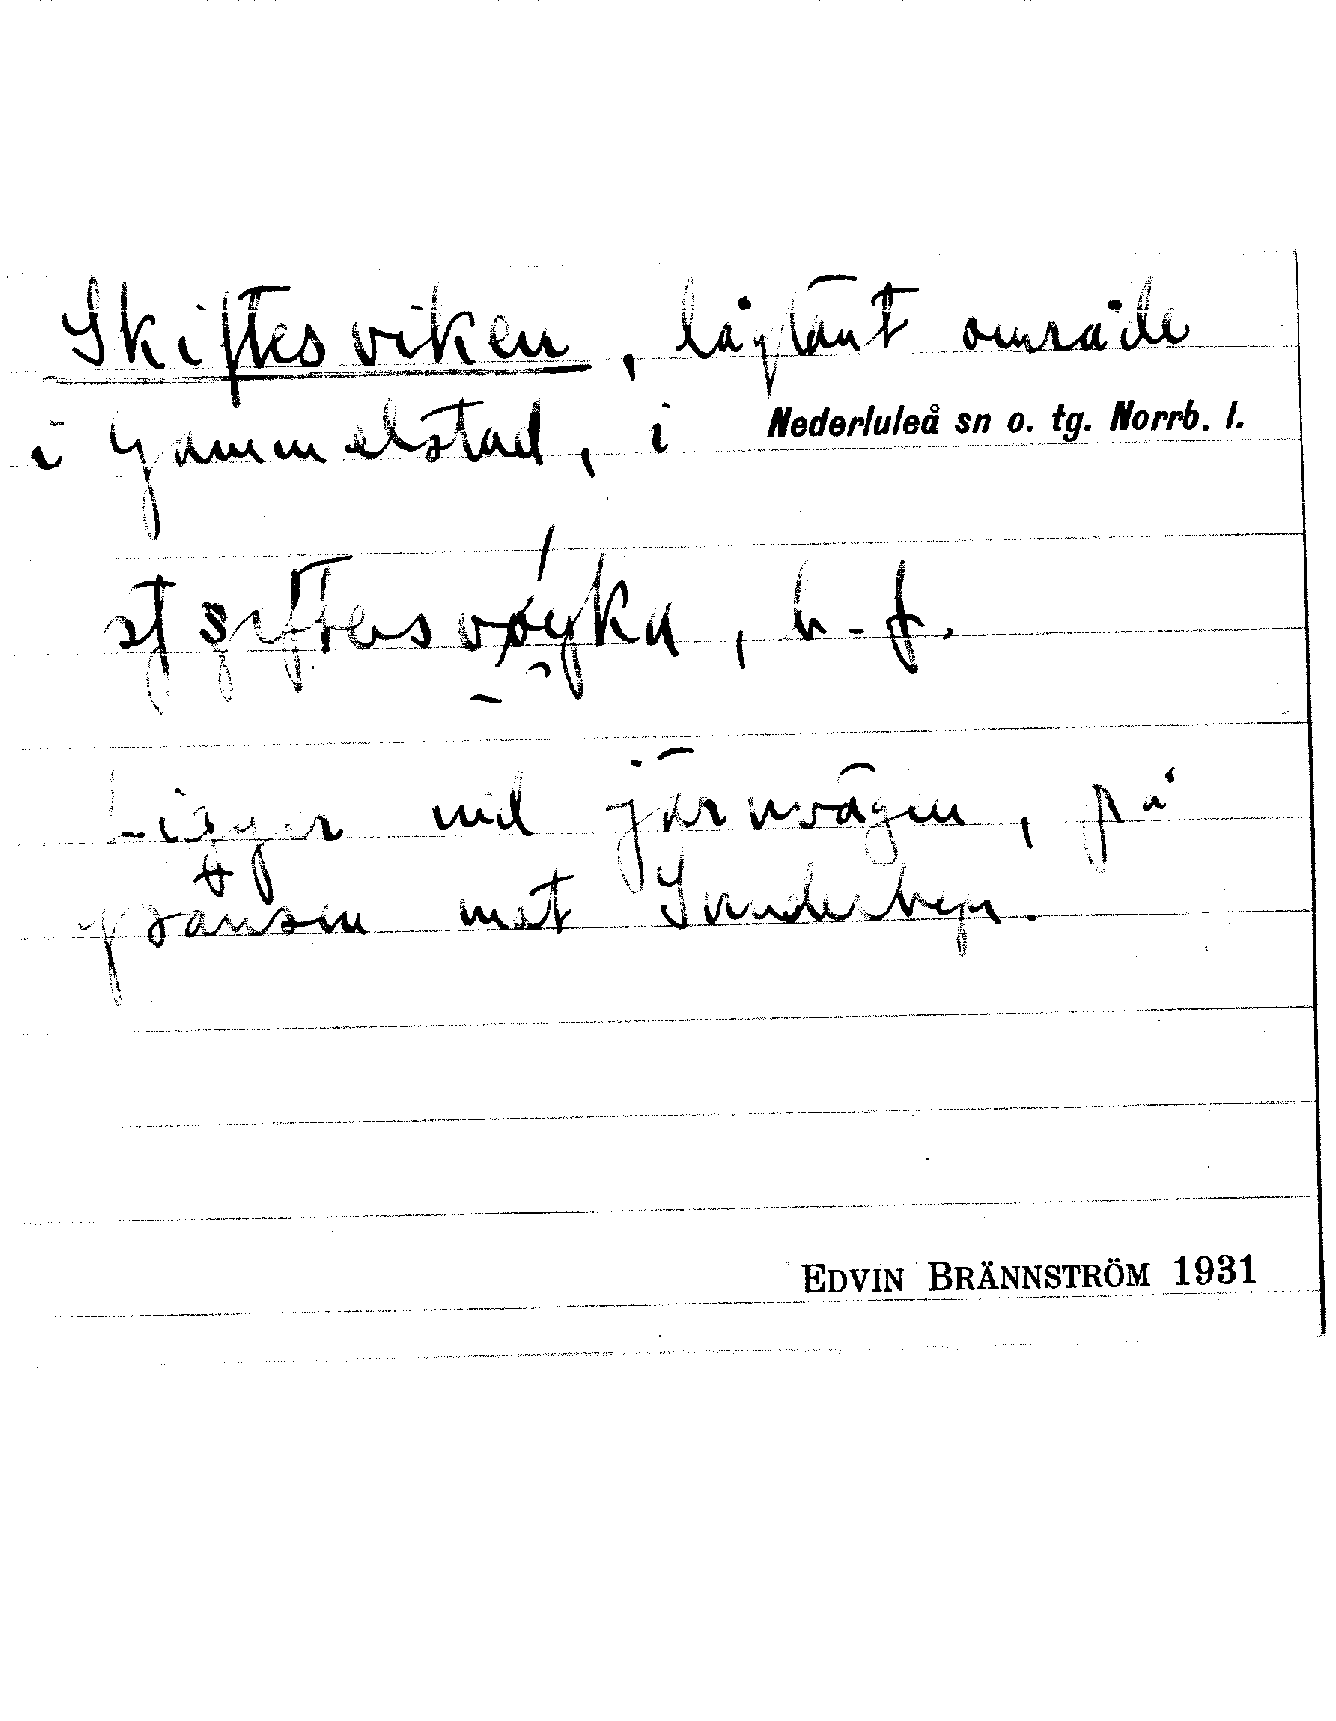 Skiftesviken, låglänt område
i Gammelstad, i Nederluleå sn o. tg. Norrb. l.
b. f.
Ligger vid järnvägen, på
gränsen mot Sunderbyn.
EDVIN BRÄNNSTRÖM 1931